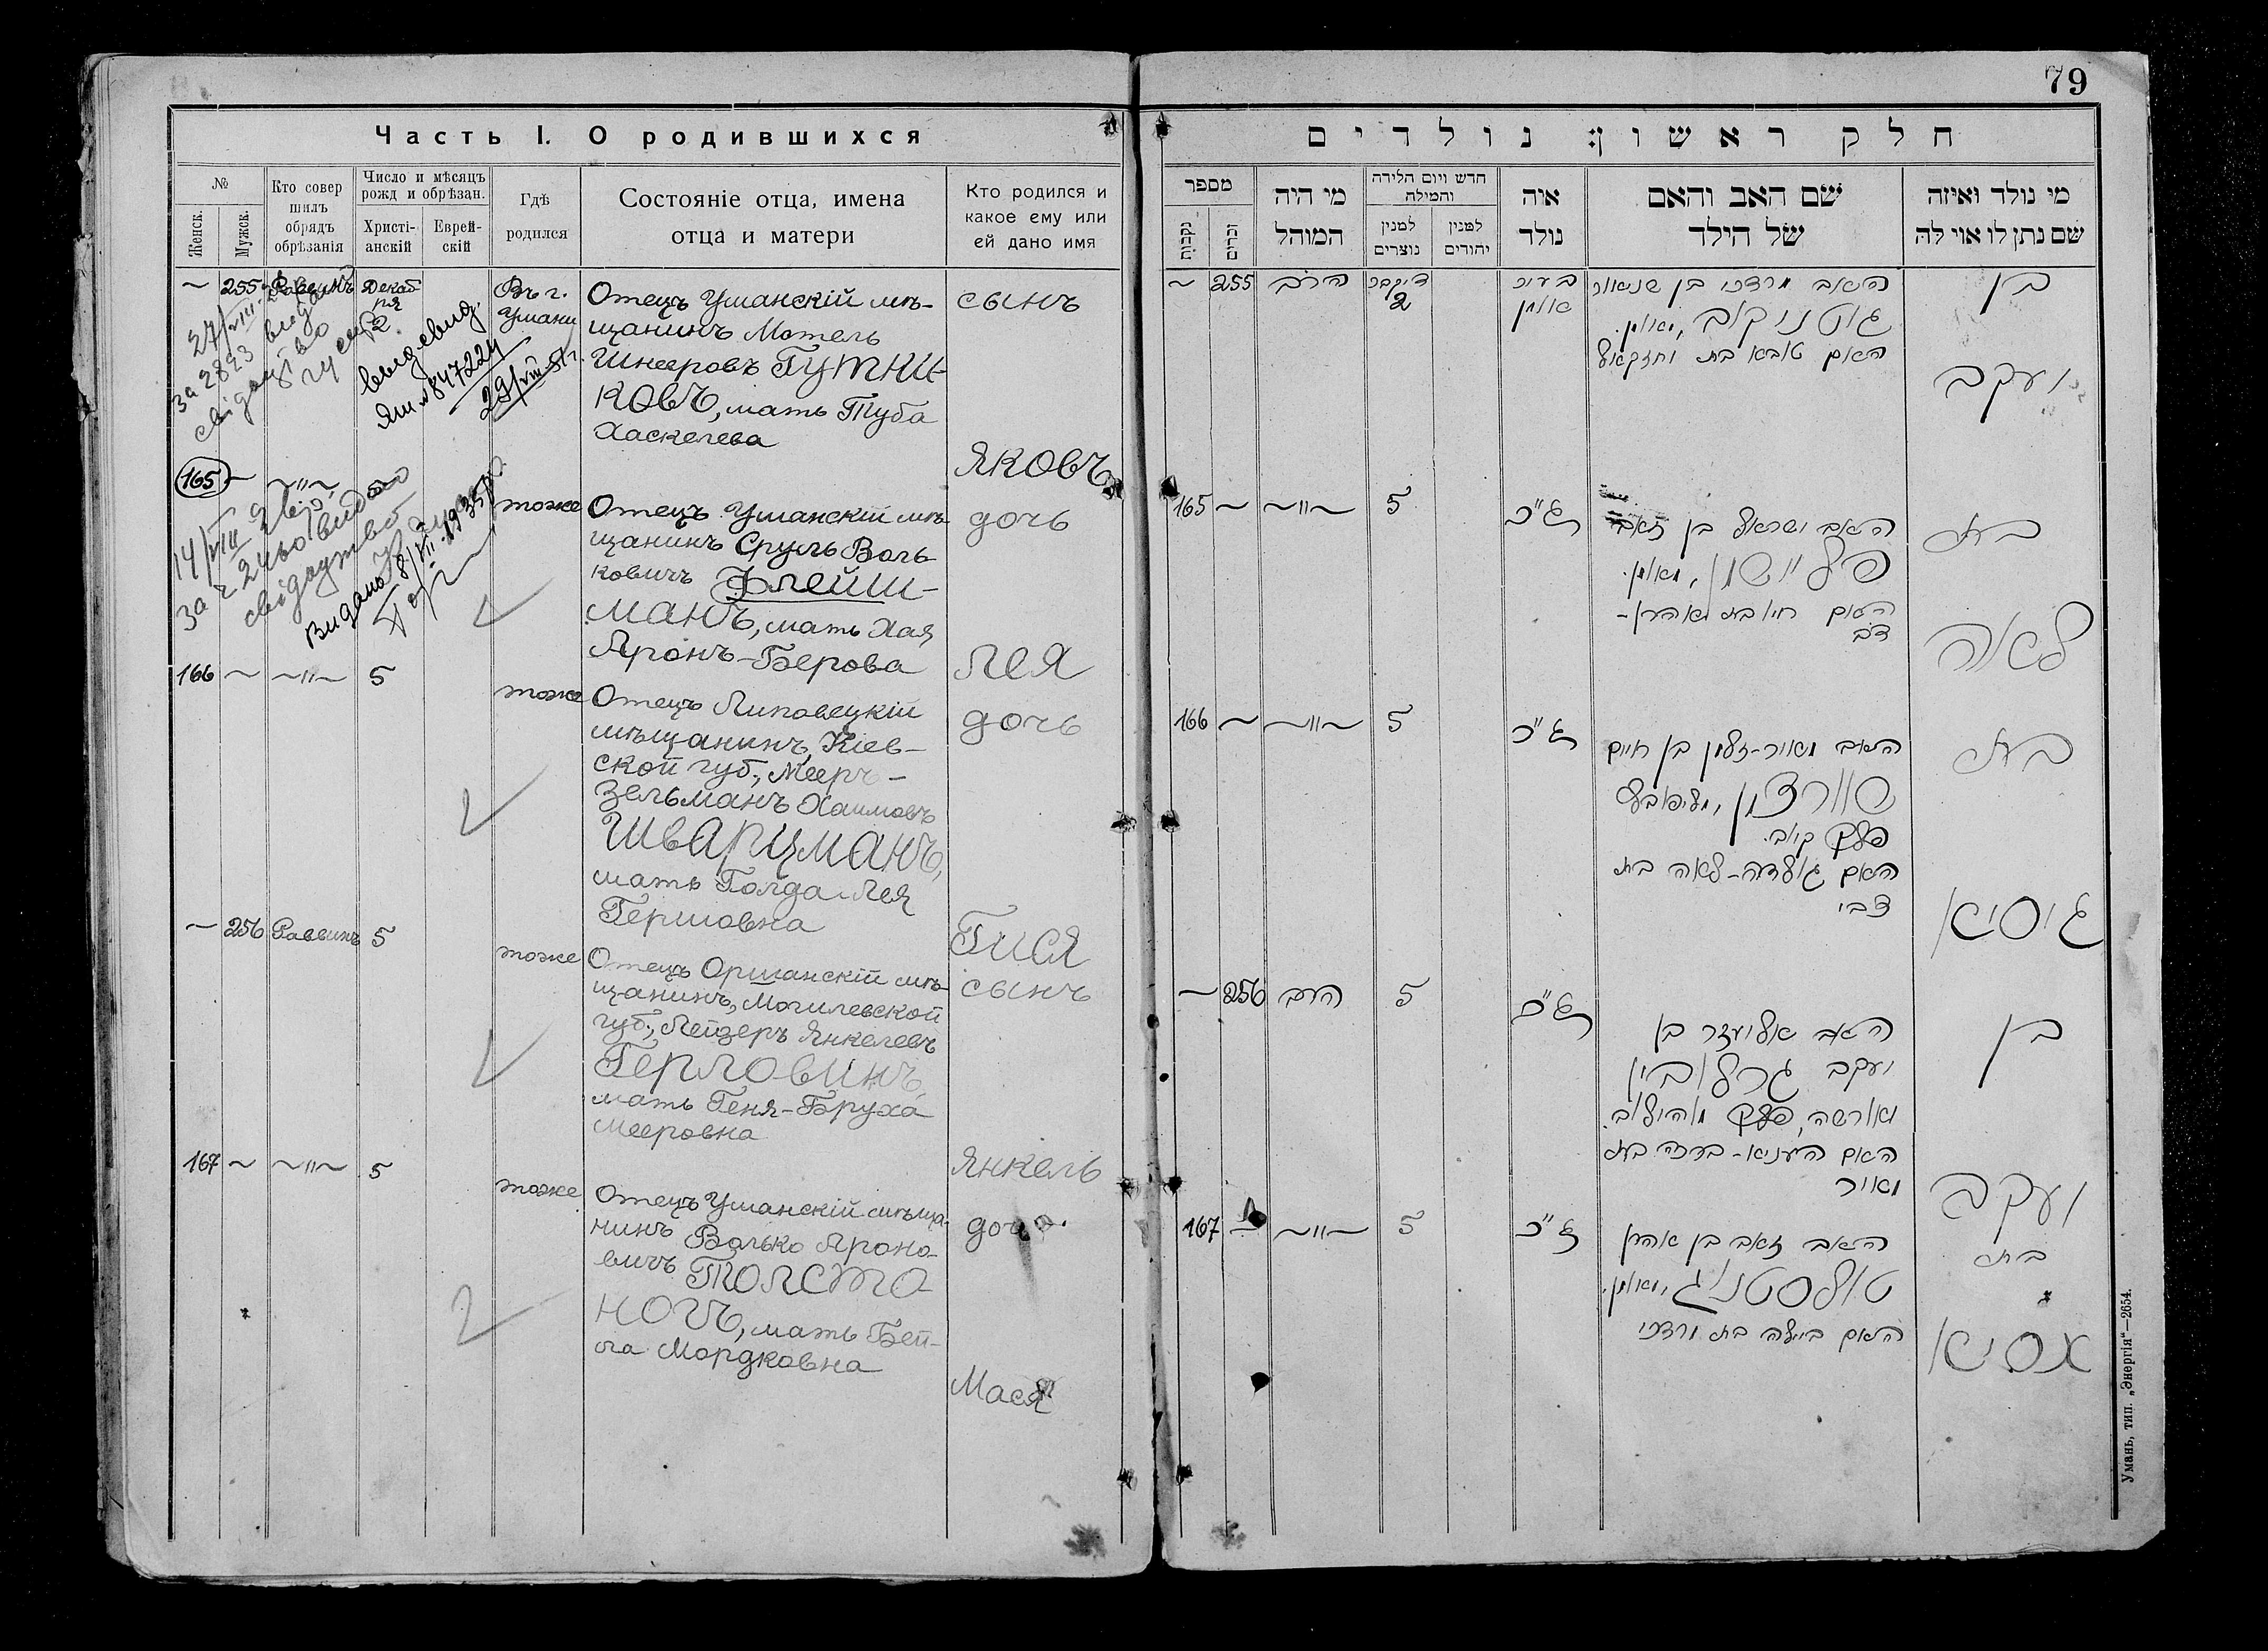 79
Часть I. О родившихся
№
Женск.
Мужск.
Кто совер
шилъ
обрядъ
обрѣзанія
Число и мѣсяцъ
рожд и обрѣзан.
Христі-
анскій
Еврей-
скій
Гдѣ
родился
Состояніе отца, имена
отца и матери
Кто родился и
какое ему или
ей дано имя
~ 255 Раввинъ
Декаб
ря
2.
Въ г.
Умани
Отецъ Уманскій мѣ-
щанинъ Мотель
Шнееровъ Гутни-
ковъ, мать Туба
Хаскелева
сынъ
Яковъ
27/VIII
за 2893
видсвид.
ЯШ № 847224
29/VIII
165 ~ ~"~ 5
тоже
Отецъ Уманскій мѣ-
щанинъ Сруль Воль
ковичъ Флейш-
манъ, мать Хая
Аронъ-Берова
дочь
Лея
14/VIII
свідоцтво
Видано 8/VII 1935 р.
166 ~ ~"~ 5
тоже
Отецъ Липовецкій
мѣщанинъ, Кіев-
ской губ., Мееръ-
Зельманъ Хаимовъ
Шварцманъ,
мать Голда Лея
Гершовна
дочь
Гися
~ 256 Раввинъ 5
тоже
Отецъ Оршанскій мѣ-
щанинъ, Могилевской
губ., Лейзеръ Янкелевъ
Герловинъ,
мать Геня-Бруха
Мееровна
сынъ
Янкель
167 ~ ~"~ 5
тоже
Отецъ Уманскій мѣща-
нинъ Волько Ароно-
вичъ Толсто
ногъ, мать Бей-
ла Мордковна
дочь
Мася
חלק ראשון: נולדים
מספר
נקבות
זכרים
מי היה
המוהל
חדש ויום הלידה
והמילה
למנין
נוצרים
למנין
יהודים
איה
נולד
שם האב והאם
של הילד
מי נולד ואיזה
שם נתן לו או לה
~ 255 הרב
דיקבר
2
בעיר
אומן
האב מרדכי בן שניאור
גוטניקוב, מאומן.
האם טובא בת יחזקאל
בן
יעקב
165 ~ ~"~ 5
האב ישראל בן זאב
פליישמן, מאומן.
האם חיה בת אהרן-
דב
בת
לאה
166 ~ ~"~ 5
האב מאיר-זלמן בן חיים
שורצמן, מליפובץ
פלך קיוב.
האם גולדה-לאה בת
צבי
בת
גיסיא
~ 256 הרב 5
האב אליעזר בן
יעקב גרלובין
מאורשה, פלך מוהילוב.
האם העניא-ברכה בת
מאיר
בן
יעקב
167 ~ ~"~ 5
האב זאב בן אהרן
טולסטנוג, מאומן.
האם ביילה בת מרדכי
בת
מסיא
Умань, тип. „Энергія“—2654.